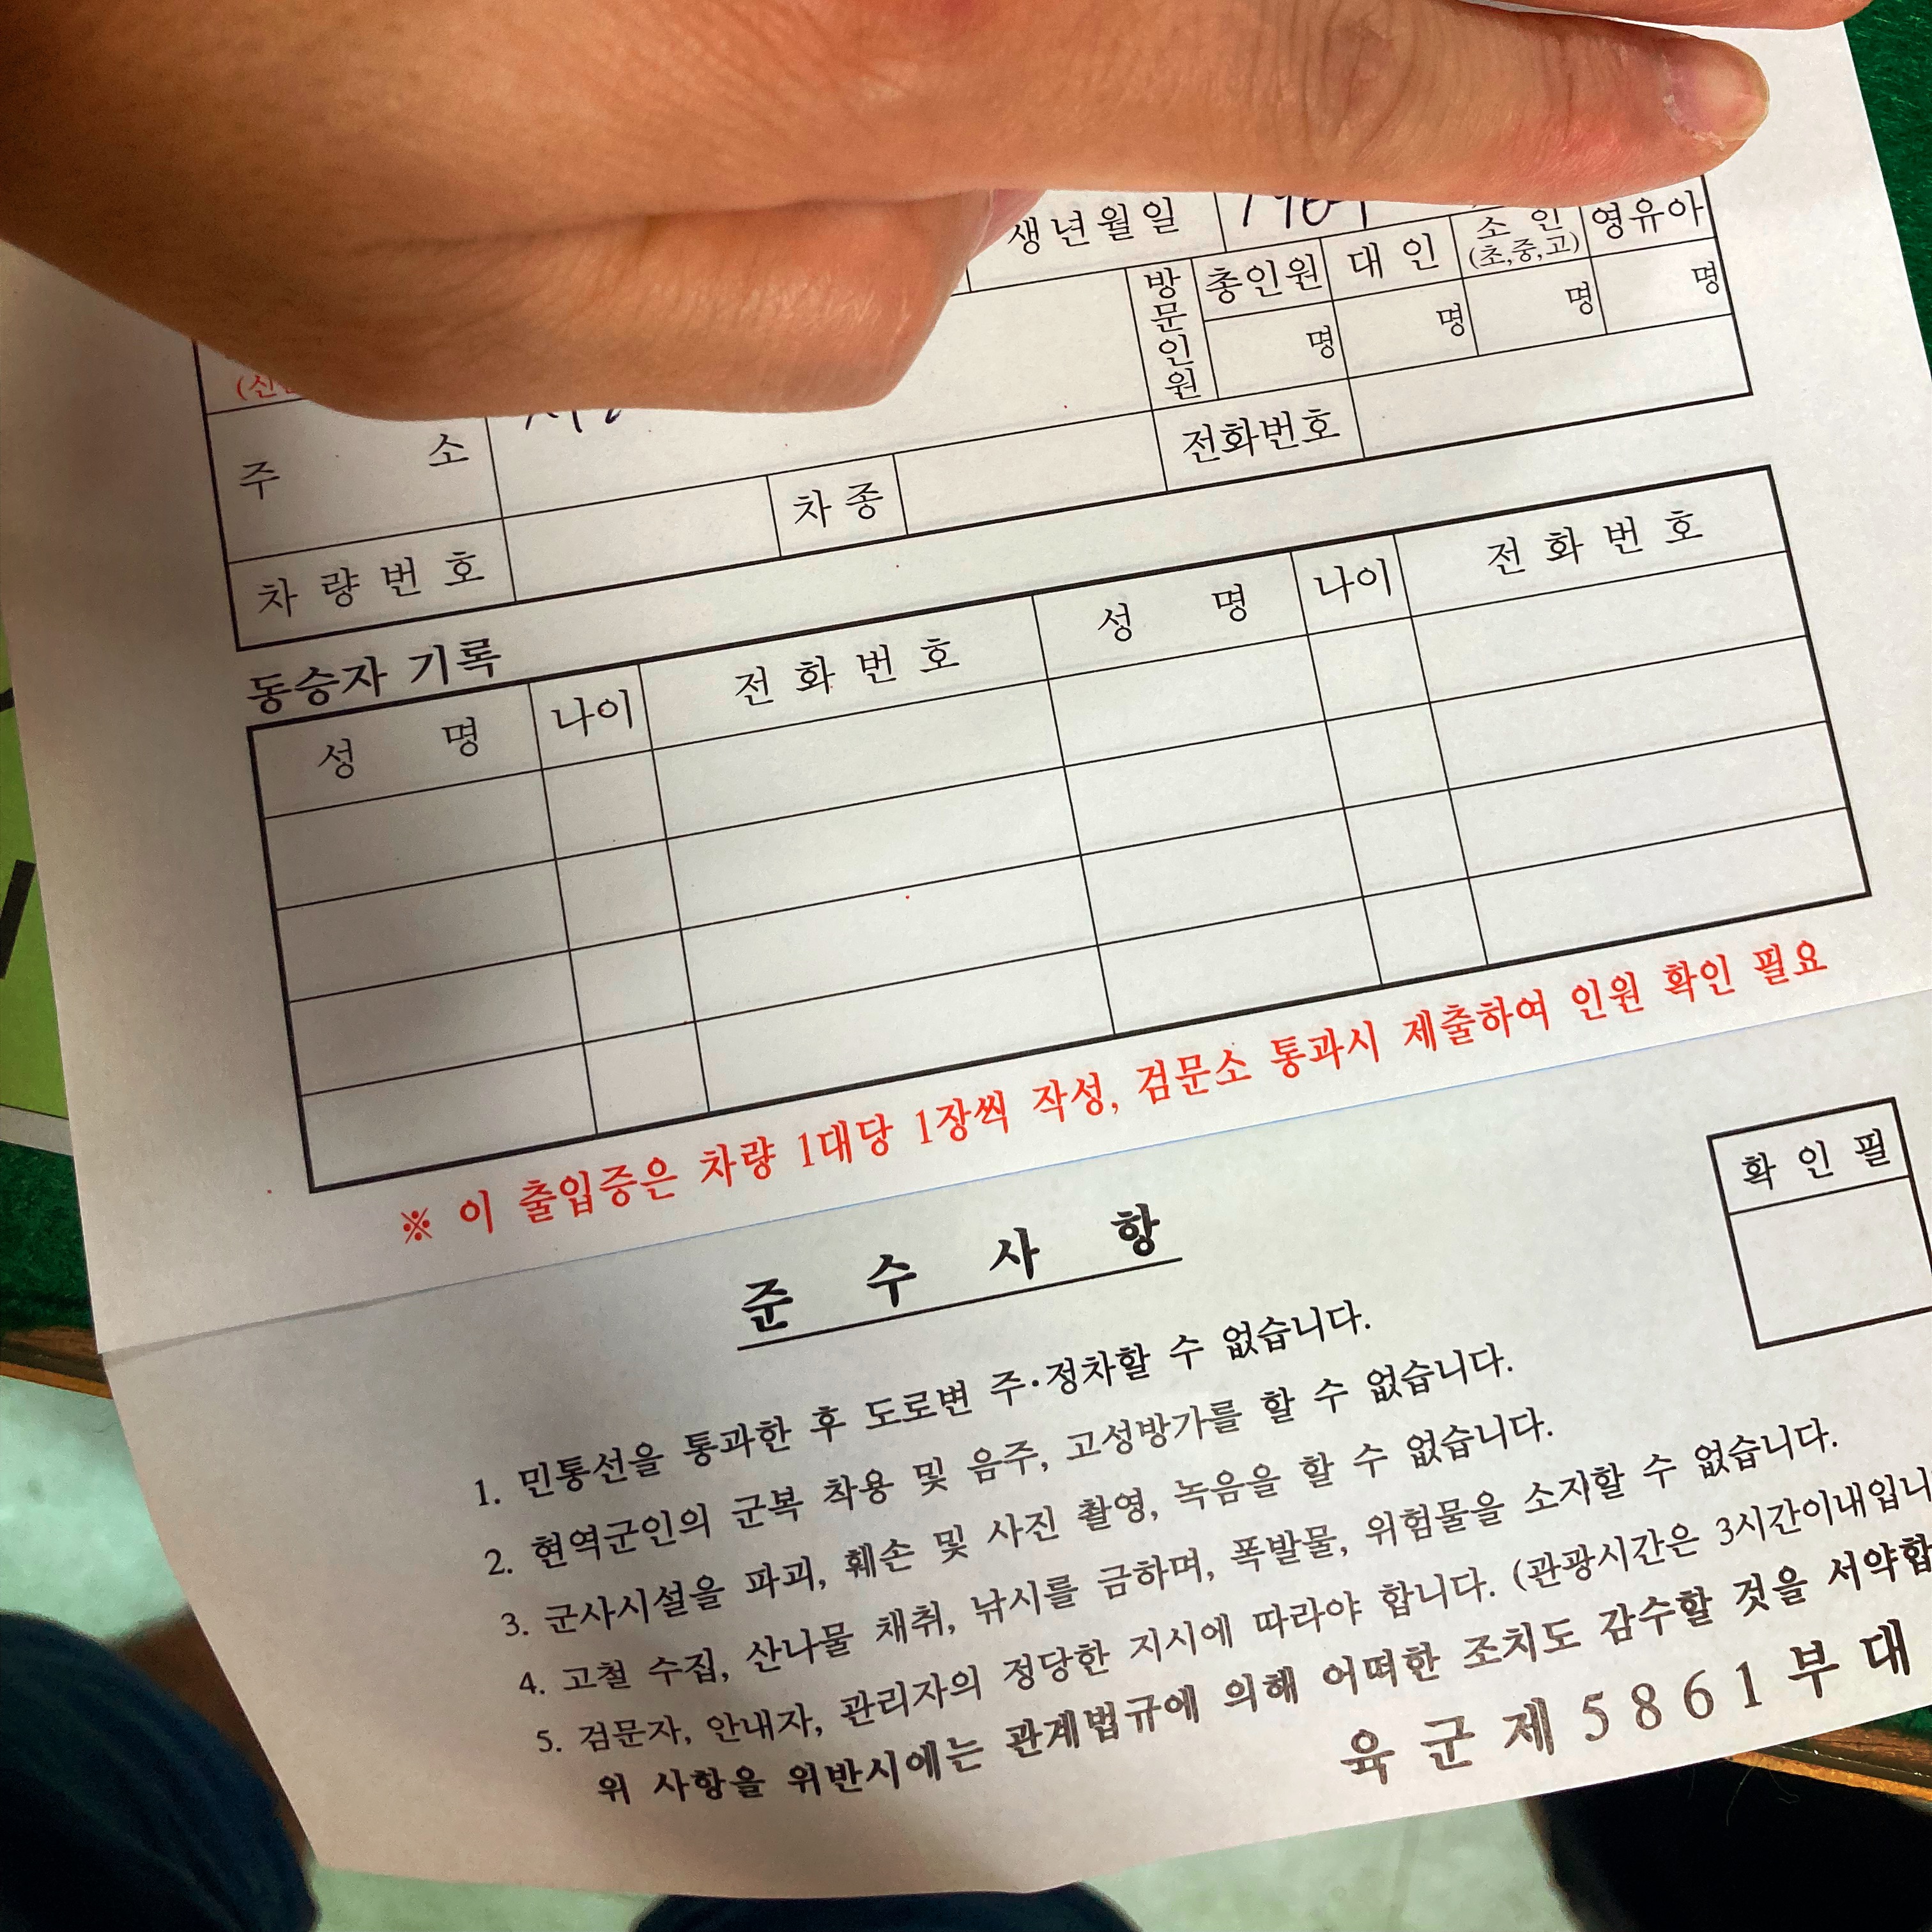 생년월일
총인원 대 인 소 인 영유아
(초,중,고)
방문인원 명 명 명 명
주 소
전화번호
차 량 번 호 차 종
동승자 기록
성 명 나이 전 화 번 호 성 명 나이 전 화 번 호
※ 이 출입증은 차량 1대당 1장씩 작성, 검문소 통과시 제출하여 인원 확인 필요
확 인 필
준 수 사 항
1. 민통선을 통과한 후 도로변 주·정차할 수 없습니다.
2. 현역군인의 군복 착용 및 음주, 고성방가를 할 수 없습니다.
3. 군사시설을 파괴, 훼손 및 사진 촬영, 녹음을 할 수 없습니다.
4. 고철 수집, 산나물 채취, 낚시를 금하며, 폭발물, 위험물을 소지할 수 없습니다.
5. 검문자, 안내자, 관리자의 정당한 지시에 따라야 합니다. (관광시간은 3시간이내입니
위 사항을 위반시에는 관계법규에 의해 어떠한 조치도 감수할 것을 서약합
육 군 제 5 8 6 1 부 대